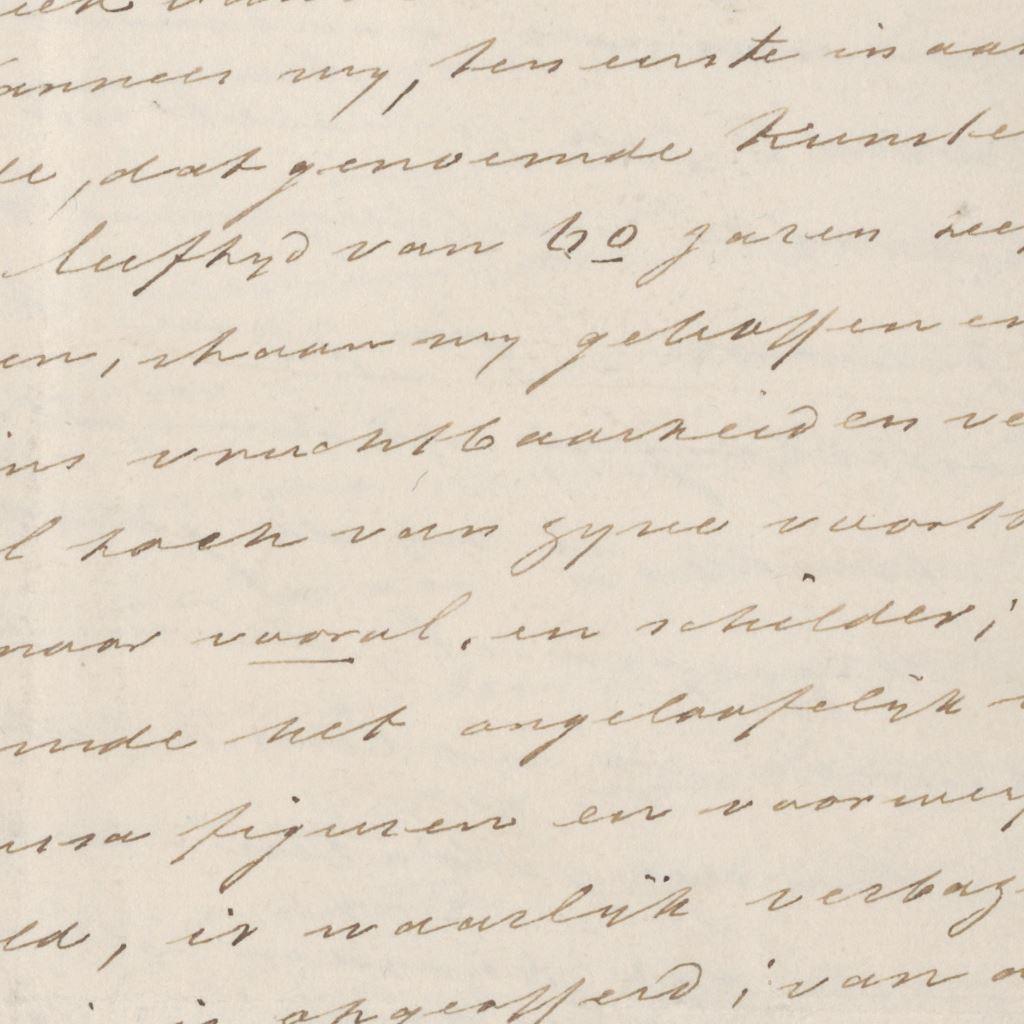 wanneer wy, ten eerste in aan
de, dat genoemde Kunste
leeftyd van 60 jaren reed
en, staan wy getroffen en
ins vruchtbaarheid en ve
l hoek van zyne voort
naar vooral, en schilder;
mde het ongelooflijk
ura figuren en voorwerp
ld, is waarlijk verbaz
is opgeofferd; van